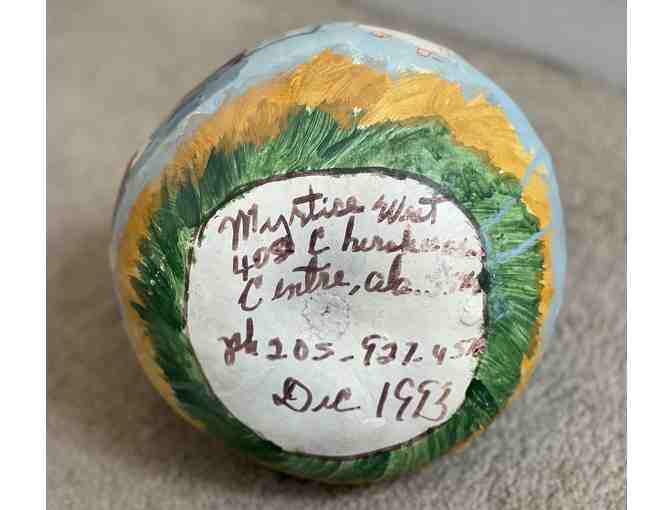 Myrtice West
405 Cherokee
Centre, ala.
ph 205-927-45
Dec 1993